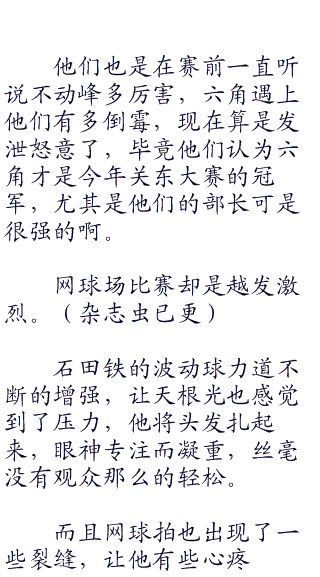 他们也是在赛前一直听
说不动峰多厉害，六角遇上
他们有多倒霉，现在算是发
泄怒意了，毕竟他们认为六
角才是今年关东大赛的冠
军，尤其是他们的部长可是
很强的啊。
网球场比赛却是越发激
烈。（杂志虫已更）
石田铁的波动球力道不
断的增强，让天根光也感觉
到了压力，他将头发扎起
来，眼神专注而凝重，丝毫
没有观众那么的轻松。
而且网球拍也出现了一
些裂缝，让他有些心疼